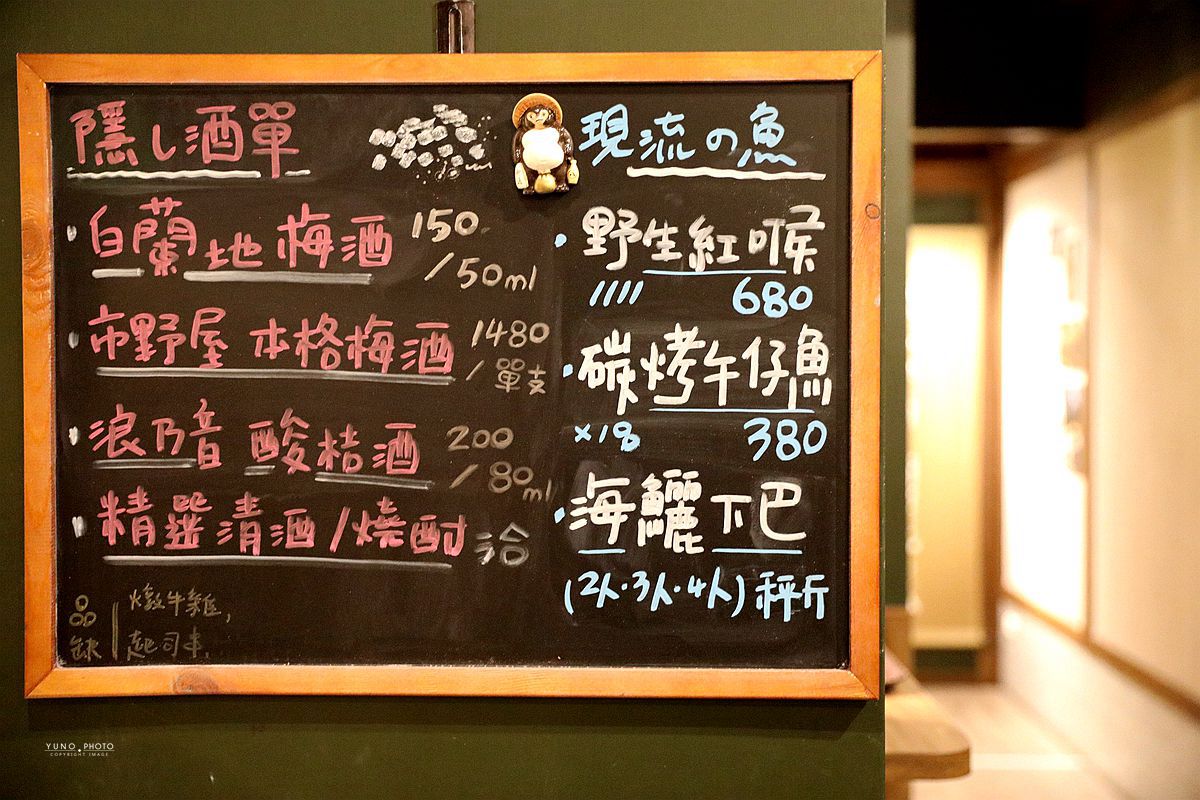 隱し酒單
白蘭地 梅酒 150
/50ml
市野屋 本格梅酒 1480
/單支
浪乃音 酸桔酒 200
/80ml
精選清酒/燒酎 洽
品缺 燉牛雜,
起司串.
現流の魚
野生紅喉
//// 680
碳烤午仔魚
×18 380
海鱺下巴
(2人·3人·4人) 秤斤
YUNO PHOTO
COPYRIGHT IMAGE